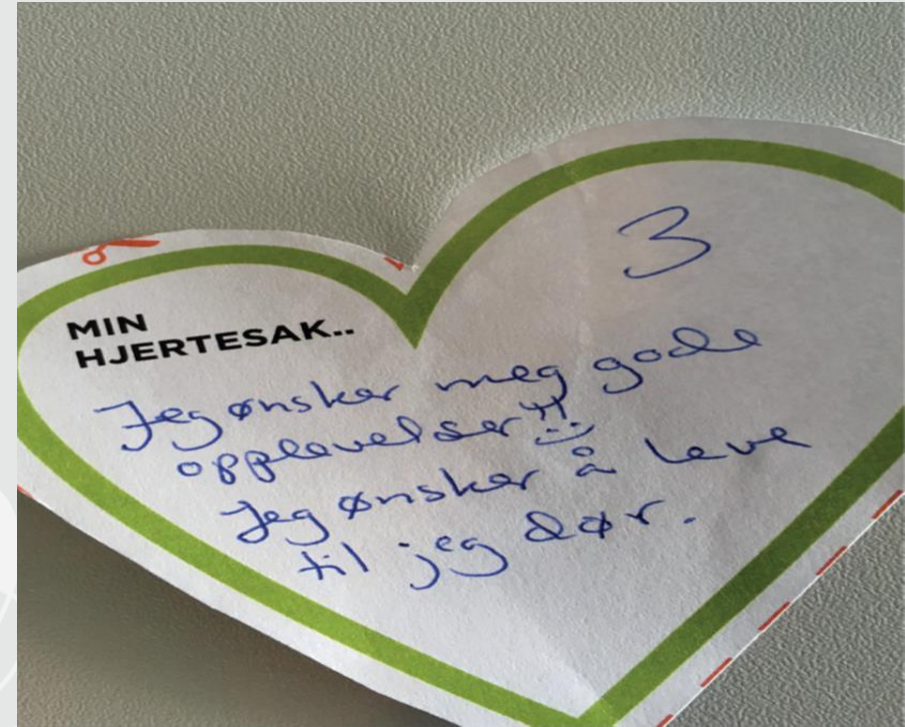 3
MIN
HJERTESAK..
Jeg ønsker meg gode
opplevelser!! :)
Jeg ønsker å leve
til jeg dør.